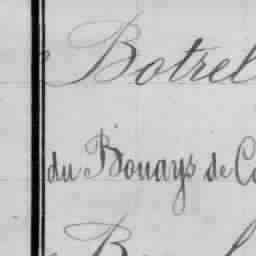 Botrel
du Bouays de Co